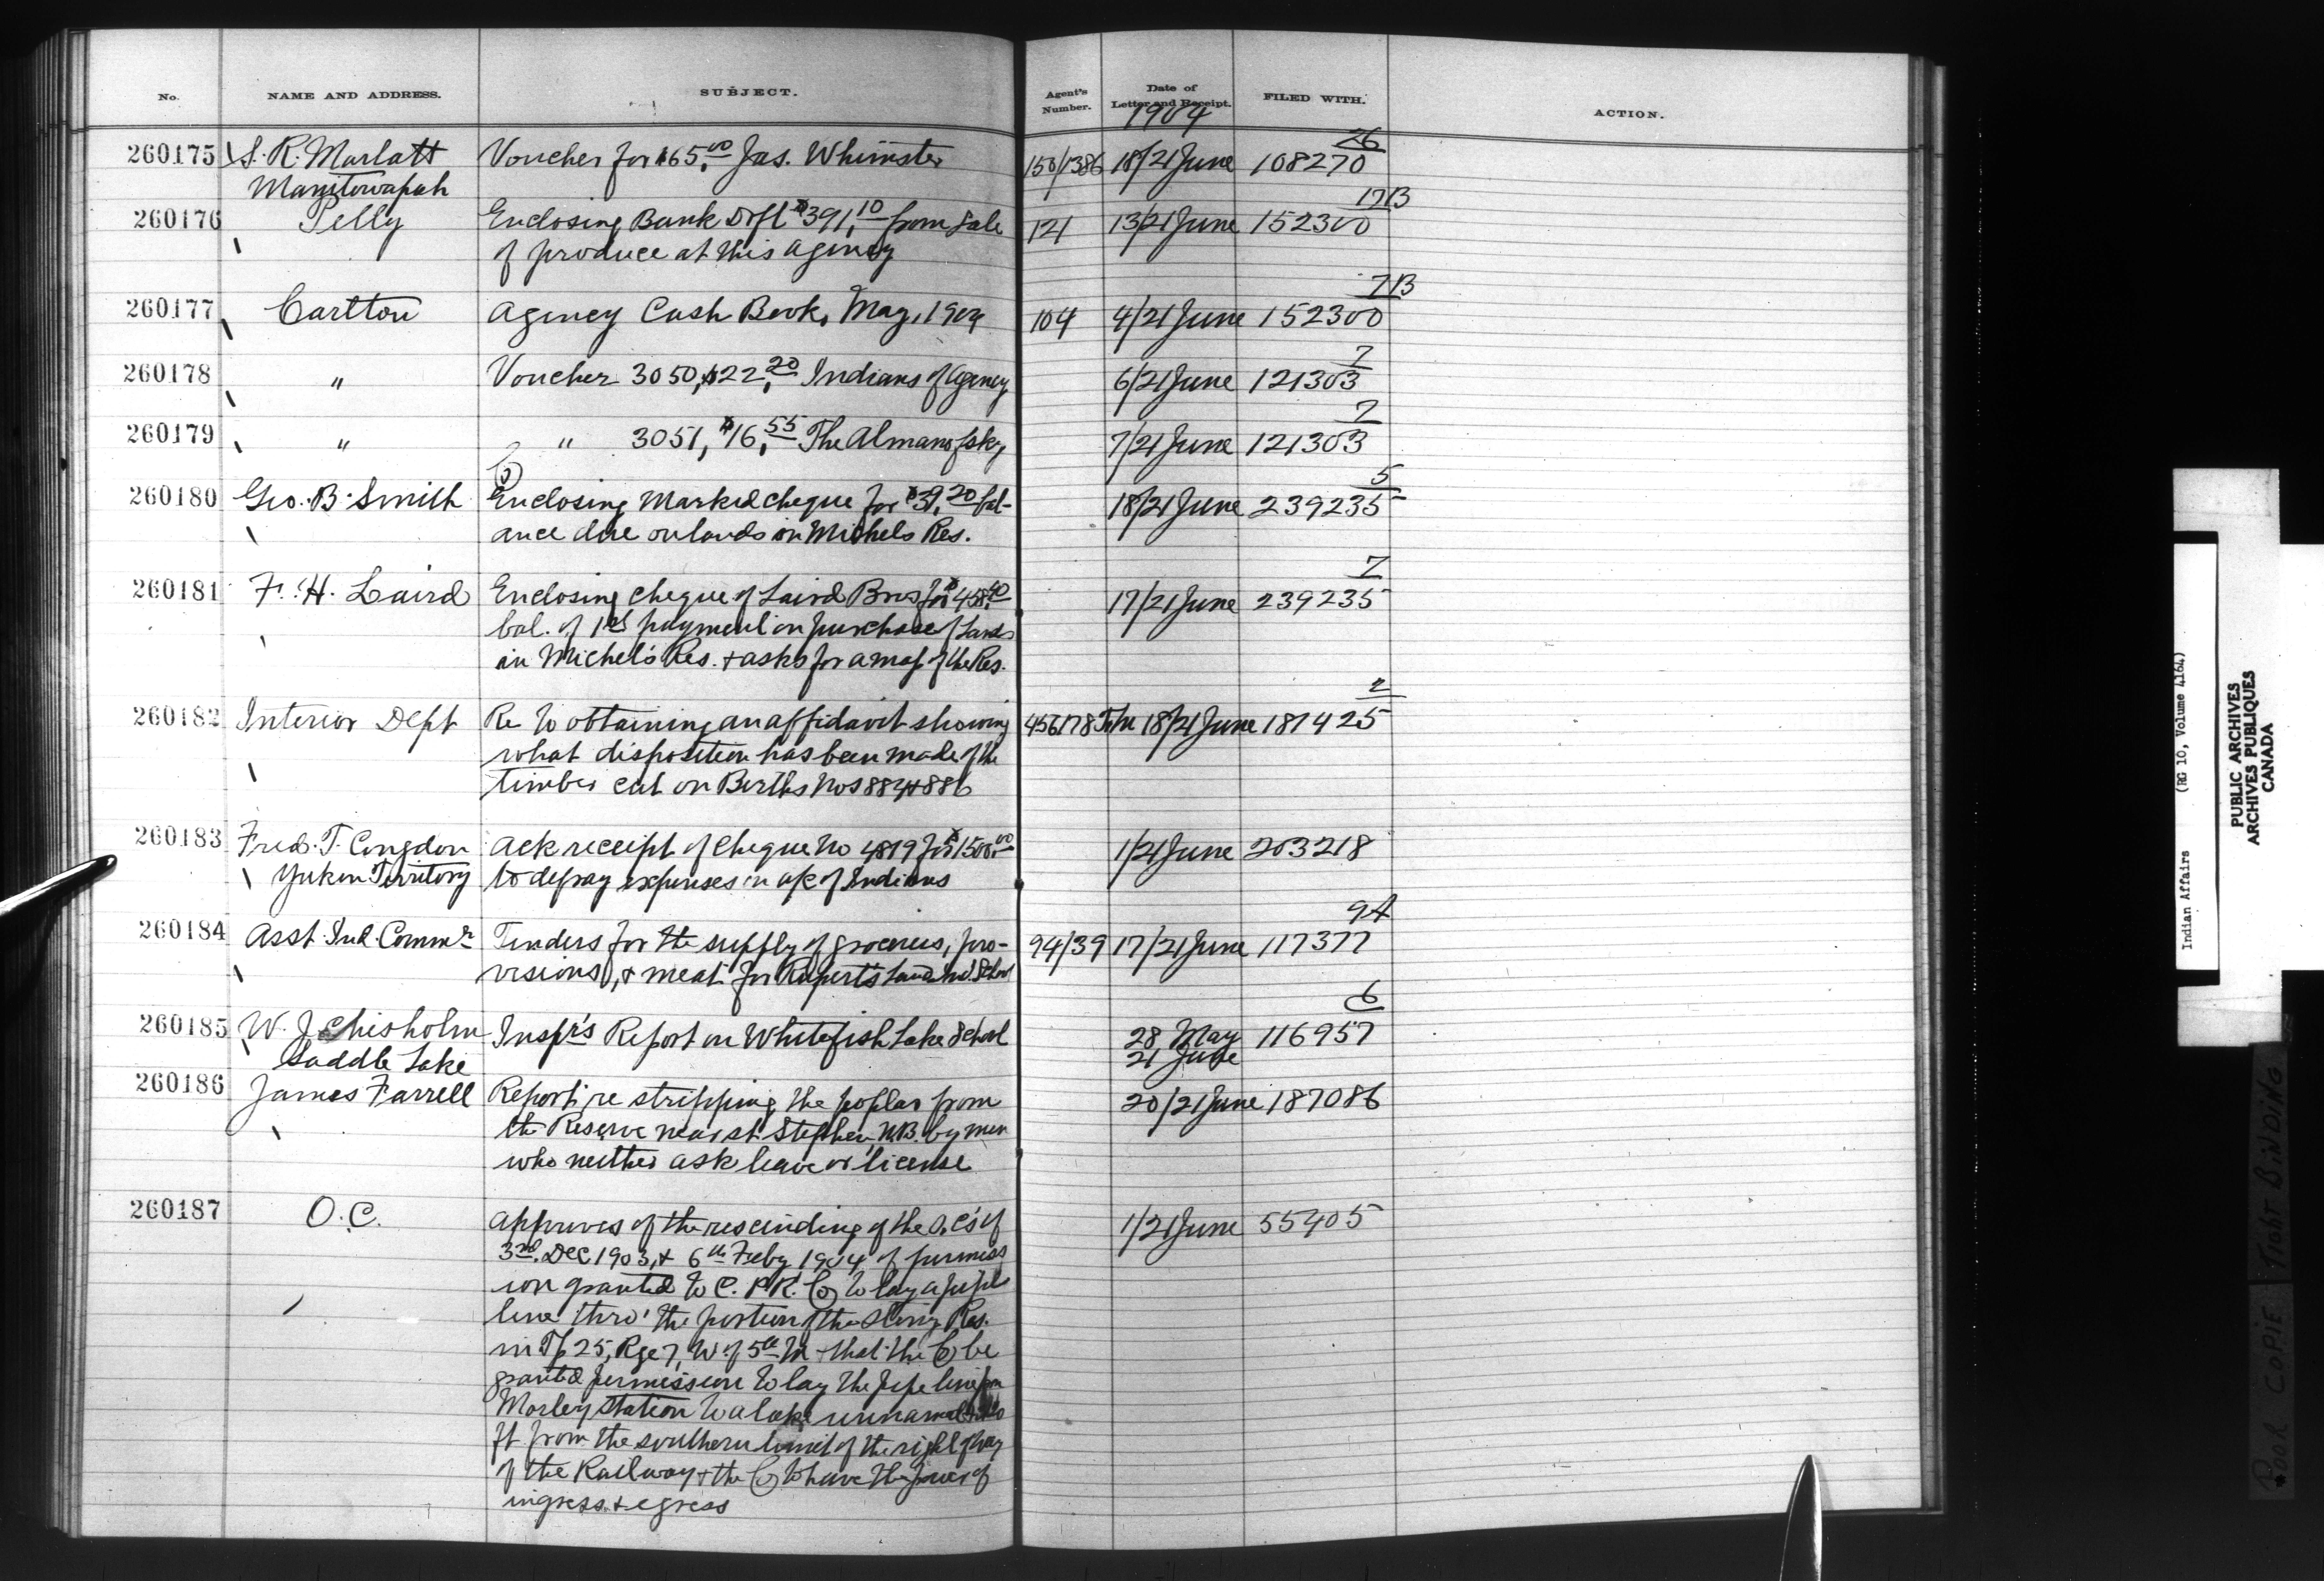 No. NAME AND ADDRESS. SUBJECT. Agent's Number. Date of Letter and Receipt. FILED WITH. ACTION.
1904
26
260175 S. R. Marlatt Voucher for $65.00 Jas. Whimster 150/1386 18/21 June 108270
Manitowapah
17B
260176 Pelly Enclosing Bank Dft $391.10 from sale 121 13/21 June 152300
of produce at this agency
7B
260177 Carlton Agency Cash Book, May, 1904 104 4/21 June 152300
7
260178 " Voucher 3050, $22.20 Indians of Agency 6/21 June 121303
7
260179 " " 3051, $16.55 The Almanofsky 7/21 June 121303
Co
5
260180 Geo. B. Smith Enclosing Marked cheque for $39.20 bal- 18/21 June 239235
ance due on lands in Michels Res.
7
260181 F. H. Laird Enclosing cheque of Laird Bros for $458.40 17/21 June 239235
bal. of 1st payment on purchase of Lands
in Michel's Res. + asks for a map of the Res.
2
260182 Interior Dept Re to obtaining an affidavit showing 456178 18/21 June 187425
what disposition has been made of the
timber cut on Berths Nos 884 & 886
260183 Fred. T. Congdon Ack receipt of Cheque No 4819 for $1500.00 1/21 June 203218
Yukon Territory to defray expenses in a/c of Indians
9A
260184 Asst. Ind. Commr Tenders for the supply of groceries, pro- 94/39 17/21 June 117377
visions, & meat for Rupert's Land Ind. School
6
260185 W. J. Chisholm Inspr's Report on Whitefish Lake School 28 May 116957
Saddle Lake 21 June
260186 James Farrell Report re stripping the poplar from 20/21 June 187086
the Reserve near St. Stephen, N.B. by men
who neither ask leave or license
260187 O.C. Approves of the rescinding of the O.C's of 1/21 June 55405
3rd Dec 1903, & 6th Feby 1904 of permiss
ion granted to C. P. R. Co to lay a pipe
line thro' the portion of the Stony Res.
in Tp 25, Rge 7, W of 5th M + that the Co be
granted permission to lay the pipe line from
Morley Station to a lake unnamed
ft from the southern limit of the right of way
of the Railway + the Co to have the power of
ingress + egress
Indian Affairs (RG 10, Volume 4164)
PUBLIC ARCHIVES
ARCHIVES PUBLIQUES
CANADA
POOR COPIE TIGHT BINDING